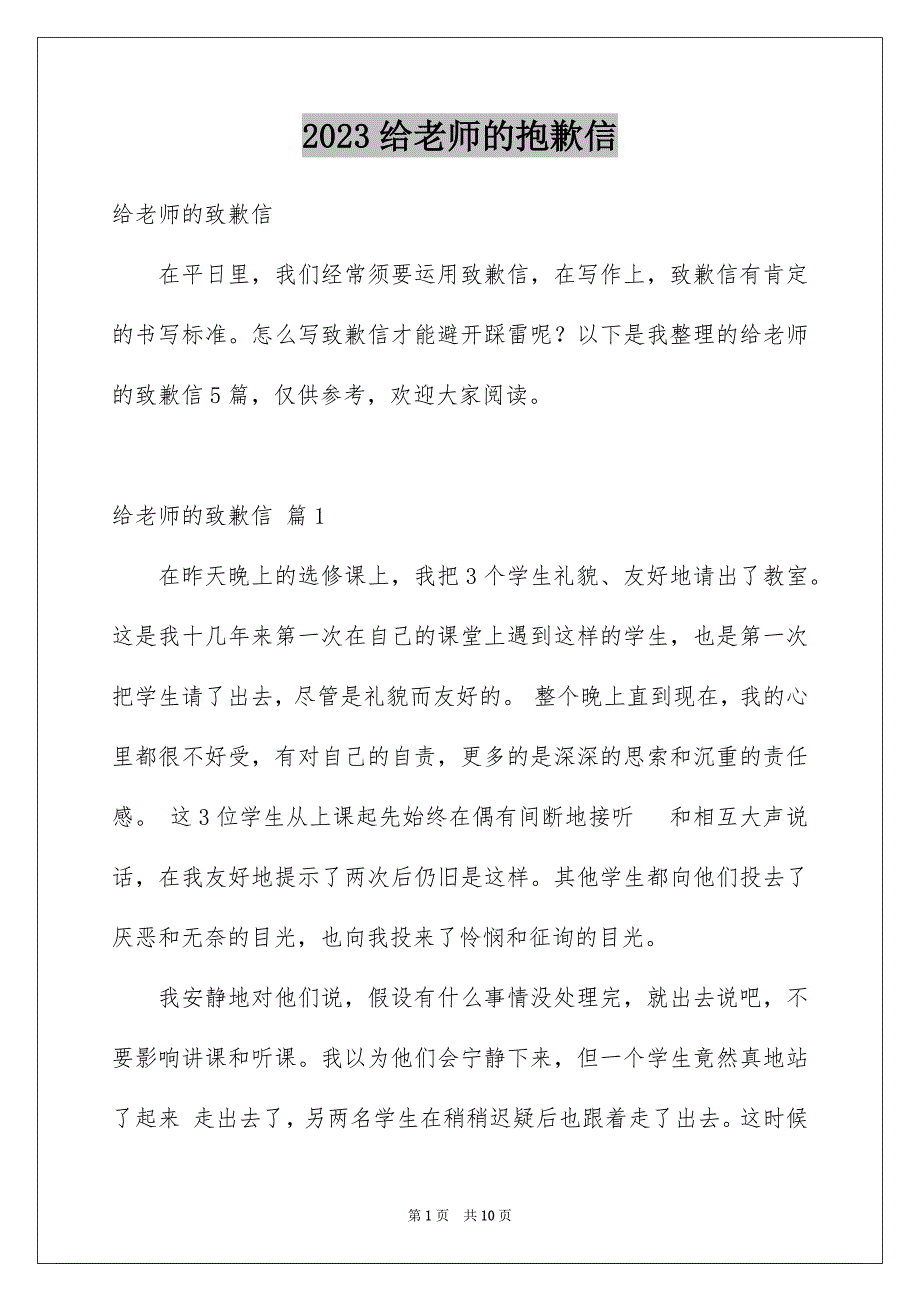 2023给老师的抱歉信
给老师的致歉信
在平日里，我们经常须要运用致歉信，在写作上，致歉信有肯定
的书写标准。怎么写致歉信才能避开踩雷呢？以下是我整理的给老师
的致歉信5篇，仅供参考，欢迎大家阅读。
给老师的致歉信 篇1
在昨天晚上的选修课上，我把3个学生礼貌、友好地请出了教室。
这是我十几年来第一次在自己的课堂上遇到这样的学生，也是第一次
把学生请了出去，尽管是礼貌而友好的。 整个晚上直到现在，我的心
里都很不好受，有对自己的自责，更多的是深深的思索和沉重的责任
感。 这3位学生从上课起先始终在偶有间断地接听 和相互大声说
话，在我友好地提示了两次后仍旧是这样。其他学生都向他们投去了
厌恶和无奈的目光，也向我投来了怜悯和征询的目光。
我安静地对他们说，假设有什么事情没处理完，就出去说吧，不
要影响讲课和听课。我以为他们会宁静下来，但一个学生竟然真地站
了起来 走出去了，另两名学生在稍稍迟疑后也跟着走了出去。这时候
第1页 共10页